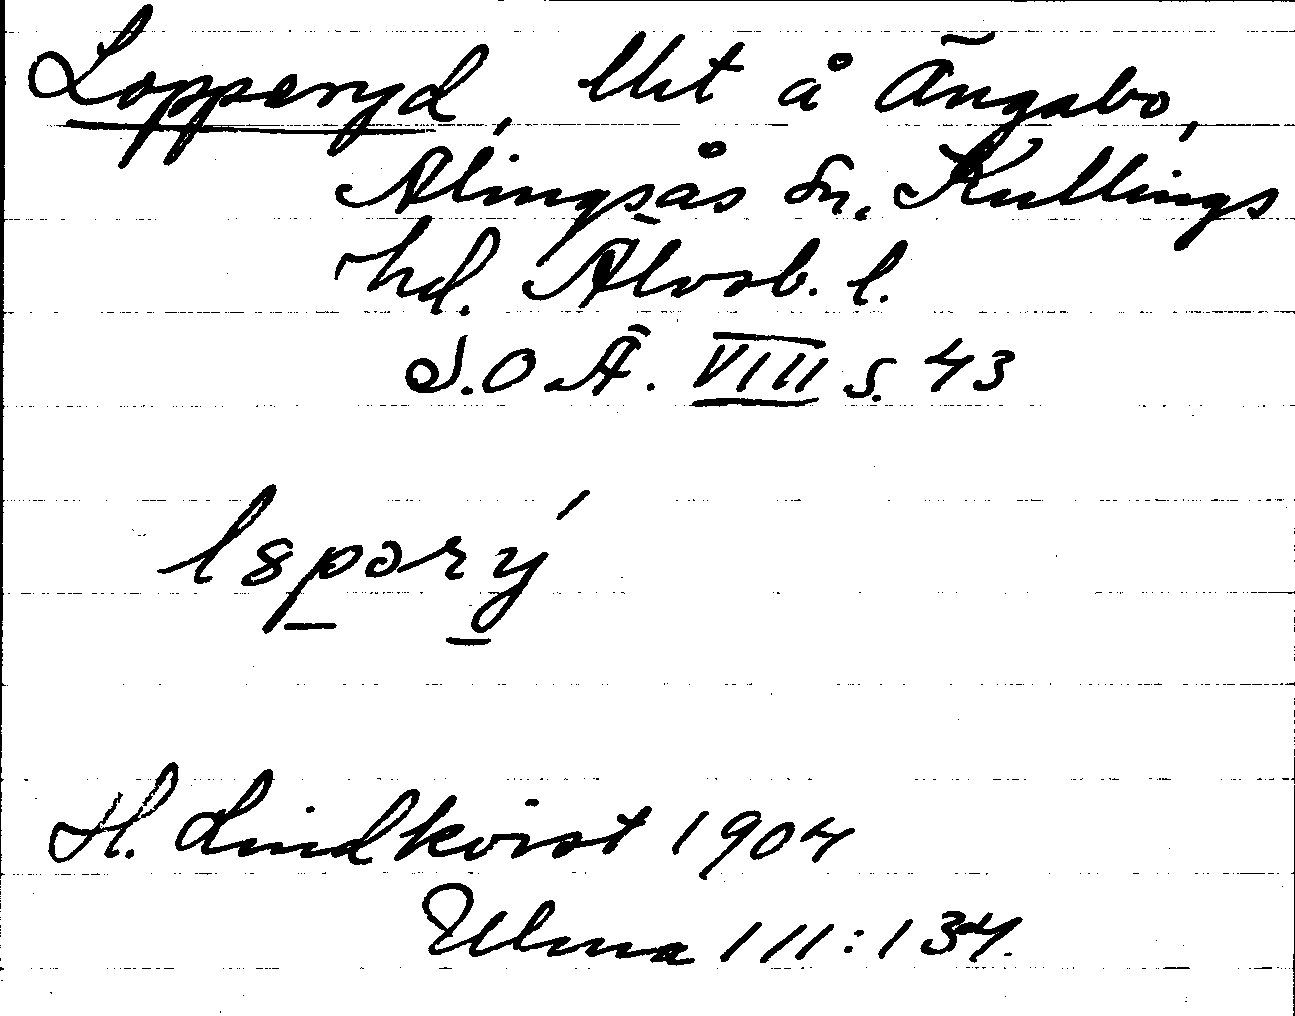 Lopperyd, lht å Ängabo,
Alingsås sn. Kullings
hd. Älvsb. l.
S.O.Ä. VIII s. 43
H. Lindkvist 1904
Ulma 111:134.